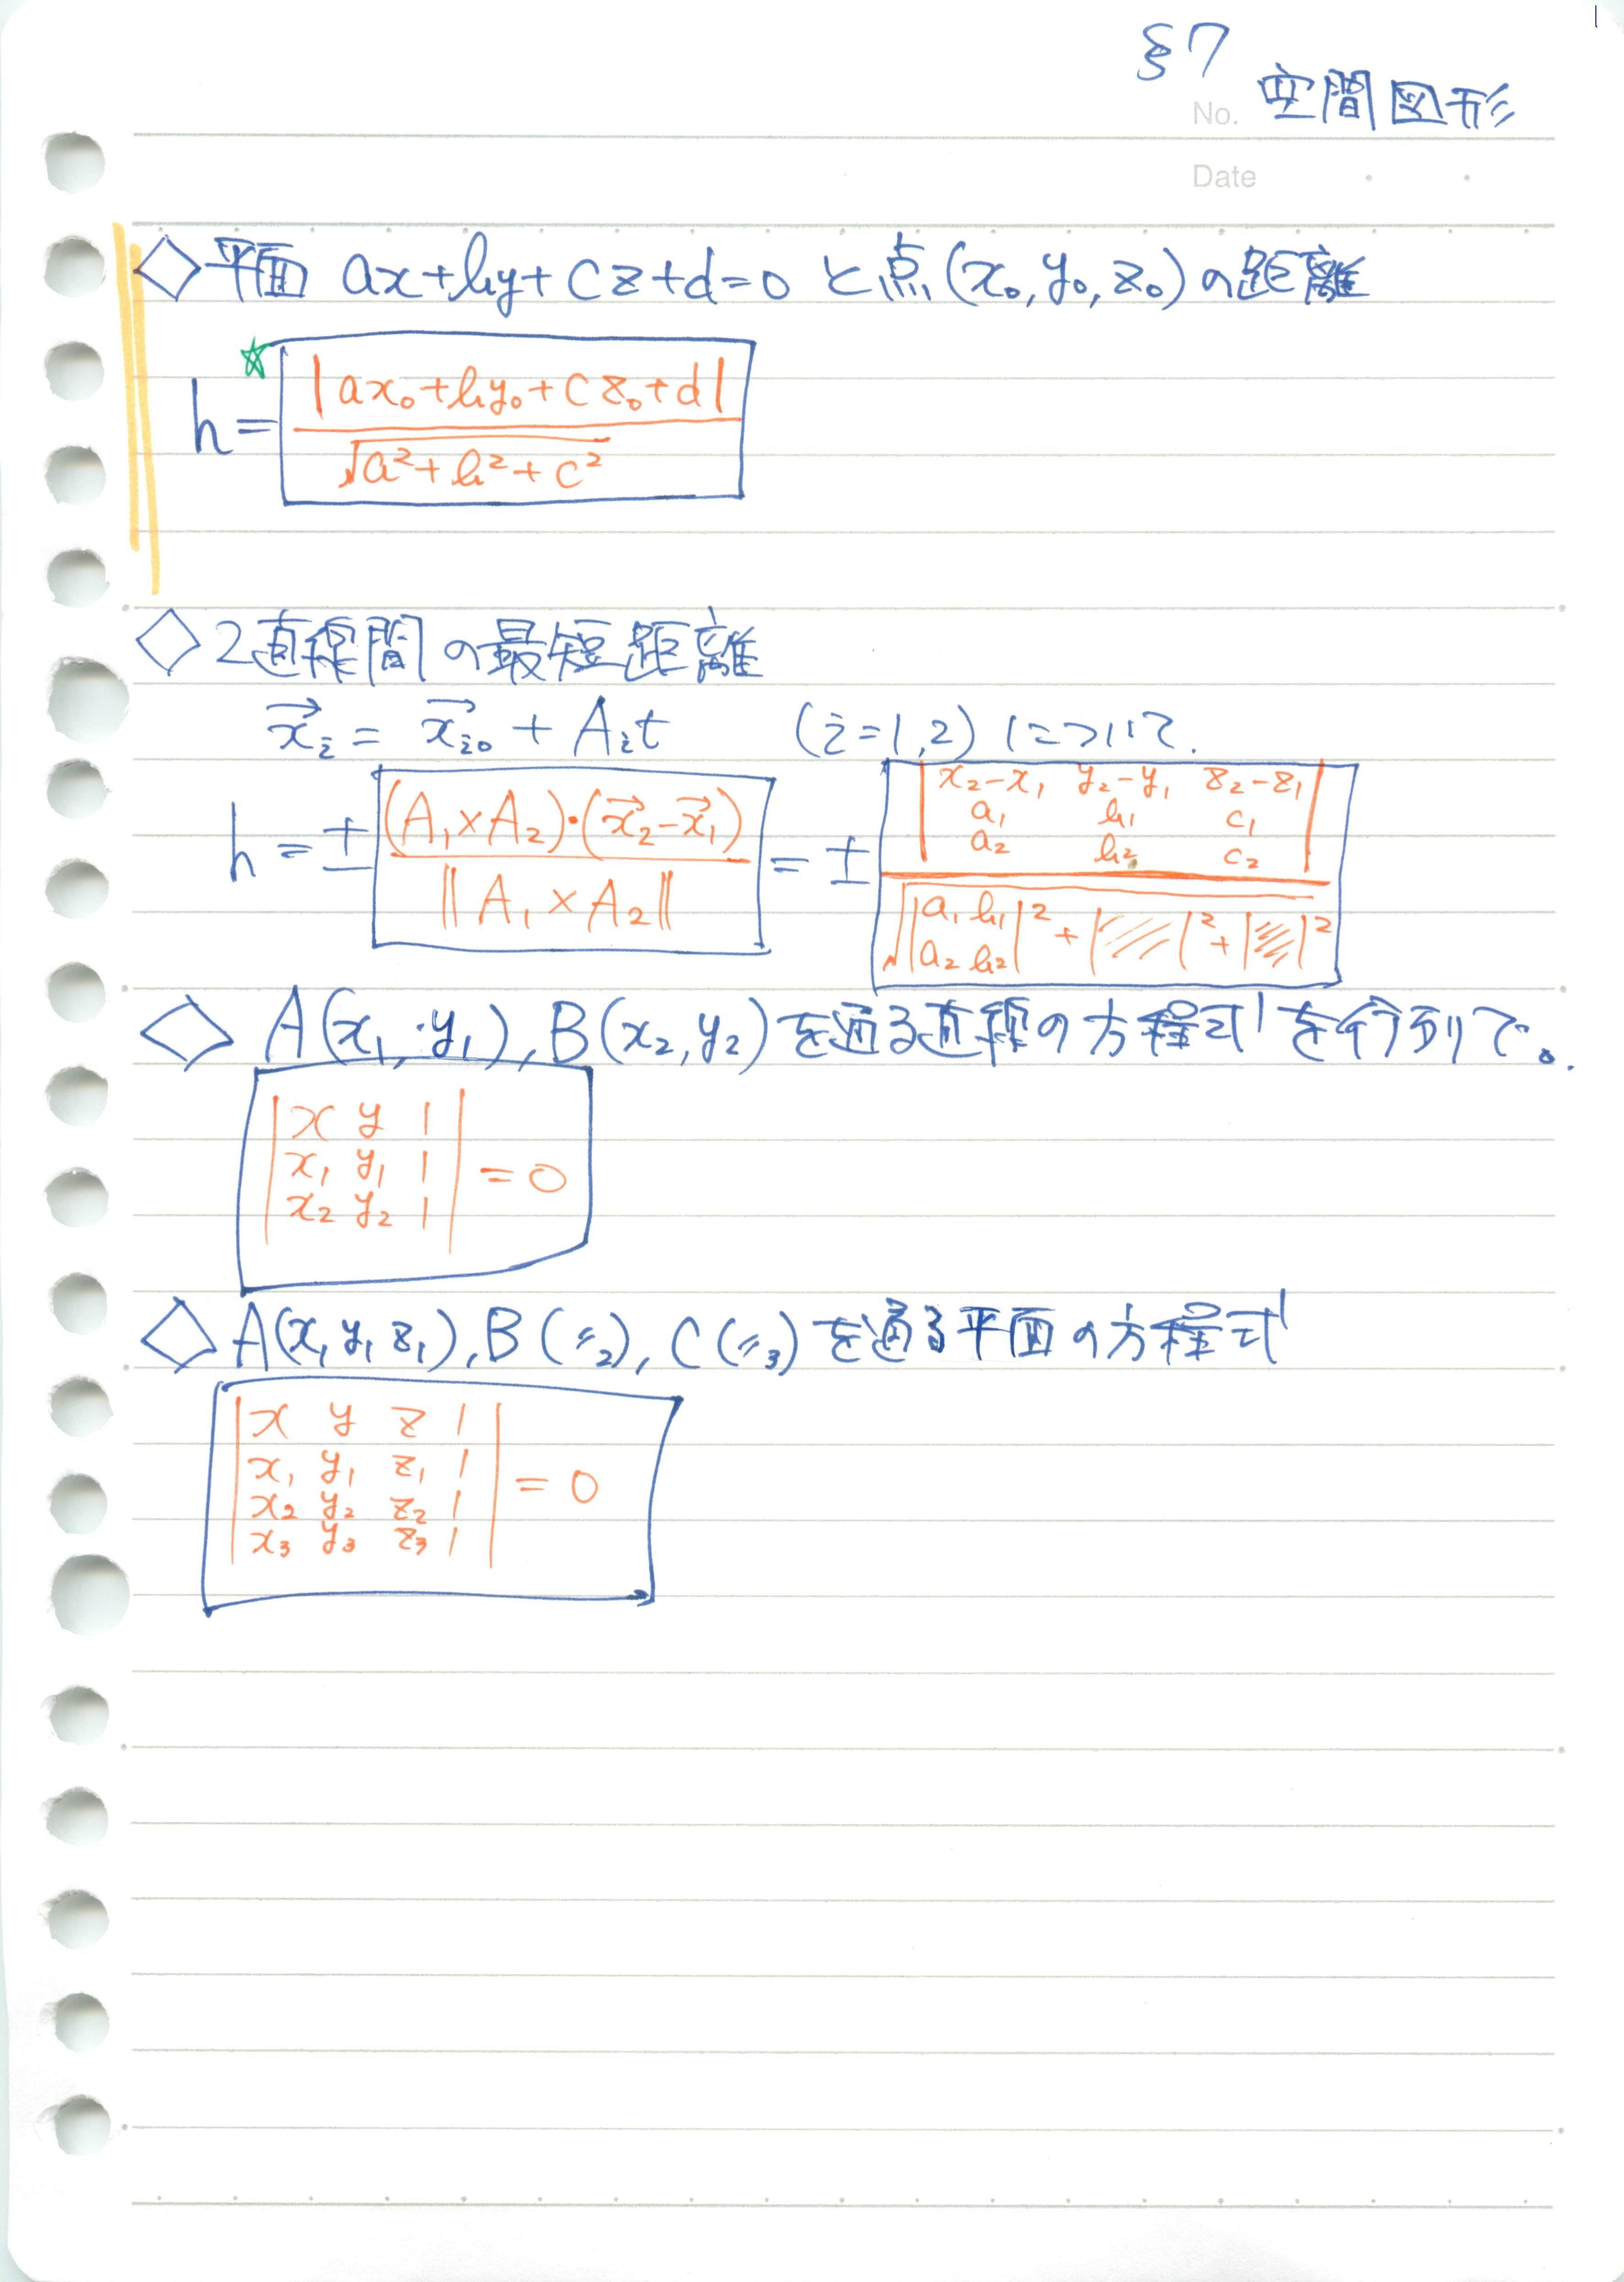 §7
No. 空間図形
Date
◇平面 ax+by+cz+d=0 と点(x₀,y₀,z₀)の距離
☆
h = |ax₀+by₀+cz₀+d| / √(a²+b²+c²)
◇2直線間の最短距離
x⃗ᵢ = x⃗ᵢ₀ + Aᵢt (i=1,2) について.
h = ± (A₁×A₂)・(x⃗₂−x⃗₁) / ‖A₁×A₂‖ = ± |x₂−x₁ y₂−y₁ z₂−z₁ ; a₁ b₁ c₁ ; a₂ b₂ c₂| / √(|a₁ b₁ ; a₂ b₂|² + | |² + | |²)
◇ A(x₁,y₁), B(x₂,y₂)を通る直線の方程式を行列で。
|x y 1|
|x₁ y₁ 1| = 0
|x₂ y₂ 1|
◇A(x₁y₁z₁), B(〃₂), C(〃₃)を通る平面の方程式
|x y z 1|
|x₁ y₁ z₁ 1| = 0
|x₂ y₂ z₂ 1|
|x₃ y₃ z₃ 1|